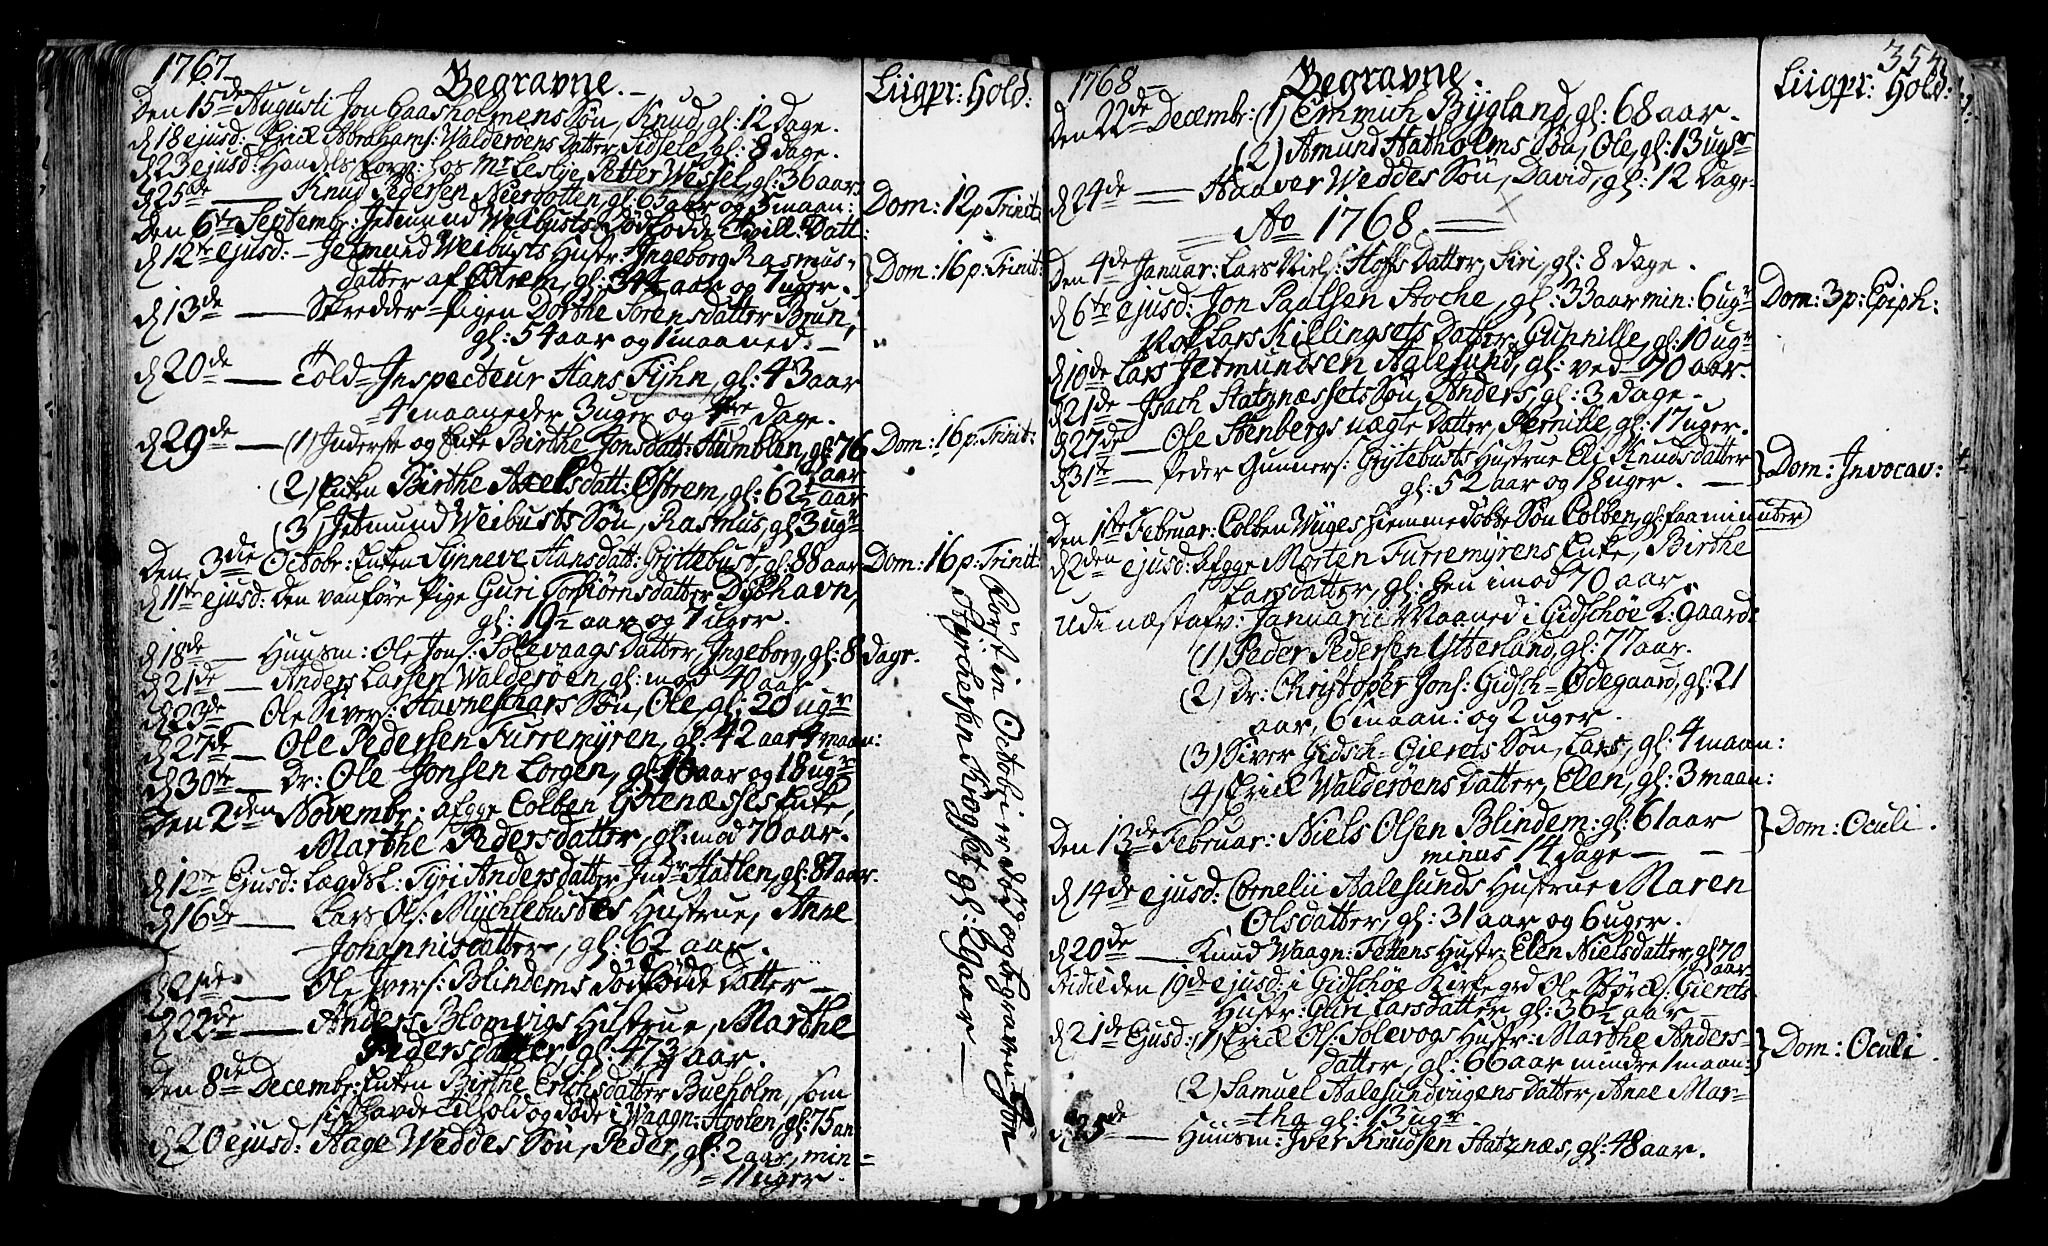 1767.
Begravne.
Liigpr: Hold:
Den 15de Augusti Jon Gaasholmens Søn, Knud, gl: 12 Dage.
d 18 ejusd: Erick Abrahams: Walderøens Datter, Sidsele, gl: 8 dage.
d 23 ejusd: Handels hos Mr Leslje, Petter Wessel, gl: 36 aar
d 25de — Knud Pedersen Neergotten, gl: 65 aar og 5 maan:
Dom: 12 p Trinit:
Den 6te Septembr: Jetmund Weibusts dødfødde Tvill: Datt:
d 12te ejusd: – Jetmund Weibusts Hustr: Ingeborg Rasmus-
datter af Østrem, gl: 34½ aar og 1 uger.
Dom: 16 p: Trinit:
d 13de — Skredder-Pigen Dorthe Sørensdatter Brun,
gl: 54 aar og 1 maaned. —
d 20de — Told-Inspecteur Hans Fijhn, gl: 43 aar
4 maaneder 3 uger og 4re dage.
d 29de — (1) Inderste og Enke Birthe Jonsdatt: Humblen, gl: 76 aar
Dom: 16 p. Trinit:
(2) Enken Birthe Axelsdatt: Østrem, gl: 62½ aar
(3) Jetmund Weibusts Søn, Rasmus, gl 3 ugr
Den 3die Octobr: Enken Synneve Hansdatt: Gryttebust, gl: 88 aar
Dom: 16 p: Trinit:
d 11te ejusd: den vanføre Pige Guri Torbiørnsdatter Dybhavn,
gl: 19½ aar og 7 uger.
d 18de — Huusm: Ole Jons: Solevaags Datter, Ingeborg, gl: 8 dage.
d 21de — Anders Larsen Walderøen, gl: mod 40 aar
d 23de — Ole Sivers: Stavneschars Søn, Ole, gl: 20 ugr
d 27de — Ole Pedersen Furremyren, gl: 42 aar 4 maan:
d 30te — Dr: Ole Jonsen Lorgen, gl: 16 aar og 18 ugr
Den 2den Novembr: afgge Colben Godenæsses Enke,
Marthe Pedersdatter, gl: mod 70 aar.
d 12te Ejusd: Lagdsl: Syri Andersdatter Indr-Hatlen, gl: 87 aar.
d 16de — Lars Ols: Mychlebusts Hustrue, Anne
Johannisdatter, gl: 62 aar.
d 21de — Ole Ivers: Blindems dødfødde Datter —
d 22de — Anders Blomvigs Hustrue, Marthe
Pedersdatter, gl: 47¾ aar.
Den 8de Decembr: Enken Birthe Erichsdatter Bueholm, som
sidst havde Tilhold og døde i Waagn: Hoolen, gl: 75 aar
d 20 ejusd: Aage Weddes Søn, Peder, gl: 2 aar, min-
11 uger.
Først in Octobr er død og begraven Jon
Jørchesen Krogset, gl: 29 aar —
1768 —
Begravne.
354
Liigpr: Hold:
Den 22de Decembr: (1) Emmich Bygland, gl: 68 aar.
(2) Amund Hatholms Søn, Ole, gl: 13 ugr
d 24de — Haaver Weddes Søn, David, gl: 12 Dage
— Ao 1768. —
Den 4de Januar: Lars Niels: Hoffs Datter, Siri, gl: 8 dage.
d 6te ejusd: Jon Paulsen Stoche, gl: 33 aar min: 6 ugr
Dom: 3 p: Epiph:
Lars Killingsets Datter, Gunnille, gl: 10 ugr
d 10de Lars Jetmundsen Aalesund, gl: ved 70 aar.
d 21de — Isach Statznæssets Søn, Anders, gl: 3 dage.
d 27de — Ole Stenbergs uægte Datter, Pernille, gl: 17 uger.
d 31te — Peder Gunners: Grytebusts Hustrue Eli Knudsdatter
gl: 52 aar og 18 uger. —
Dom: Invocav:
Den 1ste Februar: Colben Wiiges hiemmedøbte Søn Colben, gl: faa minuter
d 2den ejusd: Afgge Morten Furremyrens Enke, Birthe
Larsdatter, gl: hen imod 70 aar.
Udi næstafv: Januarii Maaned i Gidschøe K: gaard:
(1) Peder Pedersen Ytterland, gl: 77 aar.
(2) Dr: Christopher Jons: Gidsch-Ødegaard, gl: 21
aar, 6 maan: og 2 uger.
(3) Siver Gidsch-Gierets Søn, Lars, gl: 4 maan:
(4) Erick Walderøens Datter, Elen, gl: 3 maan:
Den 13de Februar: Niels Olsen Blindem: gl: 61 aar
minus 14 dage —
Dom: Oculi.
d 14de ejusd: Cornelii Aalesunds Hustrue Maren
Olsdatter, gl: 31 aar og 6 uger.
d 20de — Knud Waagn: Tettens Hustr: Elen Nielsdatter, gl 70
aar
den 19de ejusd: i Gidschøe Kirkegrd Ole Størck: Gierets
Hustr: Guri Larsdatter, gl: 36½ aar —
d 21de Ejusd: (1) Erick Ols: Solevogs Hustr: Marthe Anders-
datter, gl: 66 aar mindre 1 maan:
Dom: Oculi.
(2) Samuel Aalesundvigens Datter, Ane Mar-
tha gl: 13 ugr.
d 25de — Huusm: Iver Knudsen Statznæs, gl: 48 aar.